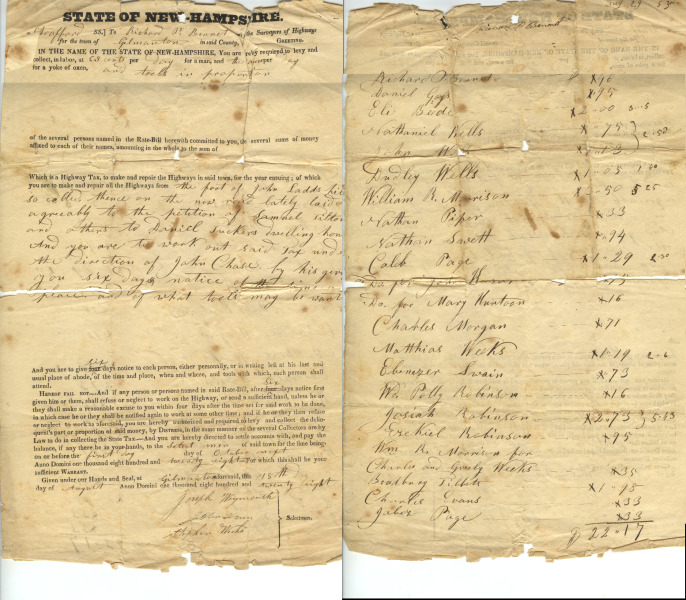 STATE OF NEW-HAMPSHIRE.
Strafford SS.] To Richard P. Bennet of the Surveyors of Highways
for the town of Gilmanton in said County, GREETING.
IN THE NAME OF THE STATE OF NEW-HAMPSHIRE, You are hereby required to levy and
collect, in labor, at cents per day for a man, and the same per day
for a yoke of oxen, and tools in proportion
of the several persons named in the Rate-Bill herewith committed to you, the several sums of money
affixed to each of their names, amounting in the whole to the sum of
Which is a Highway Tax, to make and repair the Highways in said town, for the year ensuing; of which
you are to make and repair all the Highways from the foot of John Ladds hill
so called thence on the new road lately laid out
agreeably to the petition of Samuel Tilton
and others to Daniel Tuckers dwelling house
And you are to work out said tax under
the direction of John Chase by his giving
you six days notice of the time and
place and of what tools may be want
six
And you are to give four days notice to each person, either personally, or in writing left at his last and
usual place of abode, of the time and place, when and where, and tools with which, such person shall
attend.
six
HEREOF FAIL NOT.—And if any person or persons named in said Rate-Bill, after four days notice first
given him or them, shall refuse or neglect to work on the Highway, or send a sufficient hand, unless he or
they shall make a reasonable excuse to you within four days after the time set for said work to be done,
in which case he or they shall be notified again to work at some other time; and if he or they then refuse
or neglect to work as aforesaid, you are hereby authorized and required to levy and collect the delin
quent's part or proportion of said money, by Distress, in the same manner as the several Collectors are by
Law to do in collecting the State Tax.—And you are hereby directed to settle accounts with, and pay the
balance, if any there be in your hands, to the Select men of said town for the time being;
on or before the first day day of October next
Anno Domini one thousand eight hundred and twenty eight for which this shall be your
sufficient WARRANT.
Given under our Hands and Seal, at Gilmanton aforesaid, the 15th
day of August Anno Domini one thousand eight hundred and twenty eight
Joseph Weymouth
Stephen Weeks
Selectmen.
Richard P Bennet 96
Daniel Gay 95
Eli Bede 2-00
Nathaniel Wells 75
John
Dudley Wells 1-05
William B. Morrison 50 5 25
Nathan Piper 33
Nathan Swett 94
Caleb Page 1-29
Do. for
Do. for Mary Huntoon 16
Charles Morgan 71
Matthias Weeks 1-19
Ebenezer Swain 73
Wd. Polly Robinson 16
Josiah Robinson 2-73
Ezekiel Robinson 95
Wm B. Morrison for
Charles and Weeks 35
Bradbury Tilton 1-95
Charles Evans 33
Jabez Page 33
$ 22-17